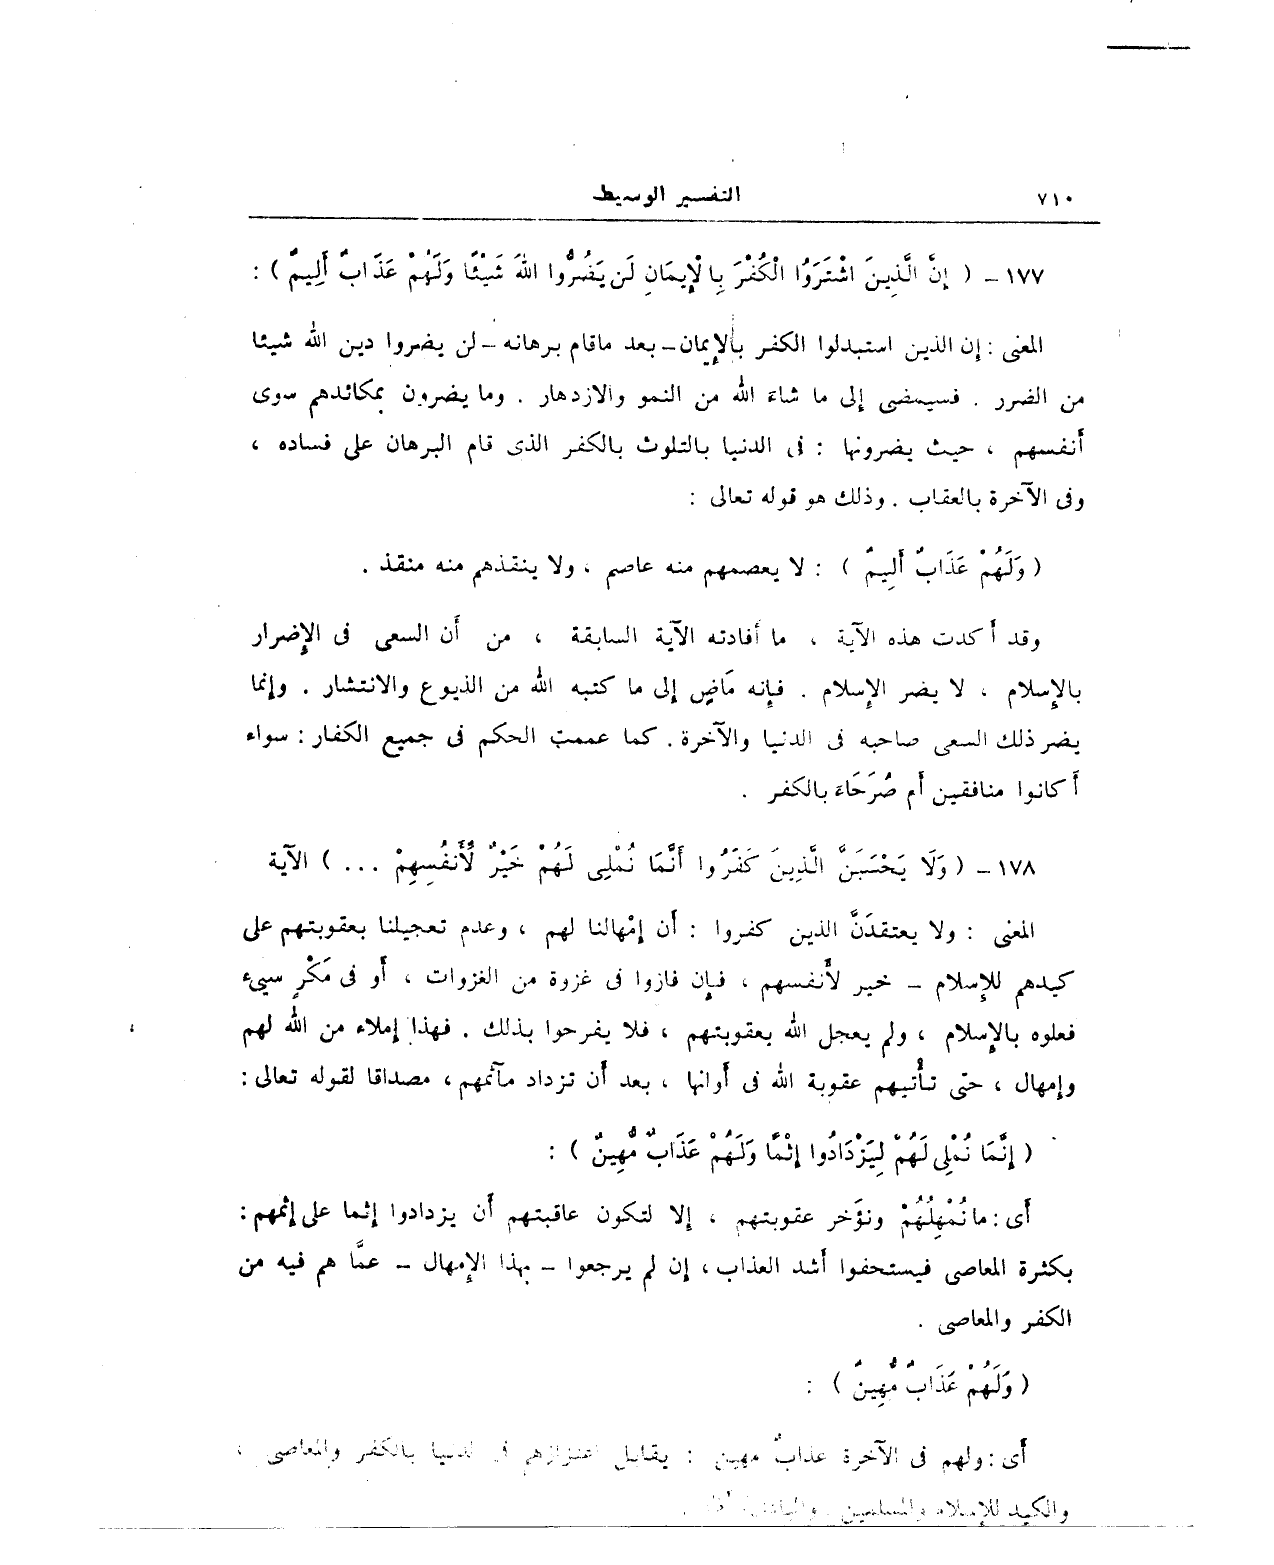 ٧١٠
التفسير الوسيط
١٧٧ – ( إِنَّ الَّذِينَ اشْتَرَوُا الْكُفْرَ بِالْإِيمَانِ لَن يَضُرُّوا اللهَ شَيْئًا وَلَهُمْ عَذَابٌ أَلِيمٌ ) :
المعنى : إن الذين استبدلوا الكفر بالإيمان – بعد ماقام برهانه – لن يضروا دين الله شيئا
من الضرر . فسيمضى إلى ما شاءَ الله من النمو والازدهار . وما يضرون بمكائدهم سوى
أنفسهم ، حيث يضرونها : فى الدنيا بالتلوث بالكفر الذى قام البرهان على فساده ،
وفى الآخرة بالعقاب . وذلك هو قوله تعالى :
( وَلَهُمْ عَذَابٌ أَلِيمٌ ) : لا يعصمهم منه عاصم ، ولا ينقذهم منه منقذ .
وقد أكدت هذه الآية ، ما أفادته الآية السابقة ، من أن السعى فى الإضرار
بالإسلام ، لا يضر الإسلام . فإنه مَاضٍ إلى ما كتبه الله من الذيوع والانتشار . وإنما
يضر ذلك السعى صاحبه فى الدنيا والآخرة . كما عممت الحكم فى جميع الكفار : سواء
أكانوا منافقين أم صُرَحَاءَ بالكفر .
١٧٨ – ( وَلَا يَحْسَبَنَّ الَّذِينَ كَفَرُوا أَنَّمَا نُمْلِى لَهُمْ خَيْرٌ لِّأَنفُسِهِمْ ... ) الآية
المعنى : ولا يعتقدَنَّ الذين كفروا : أن إمْهالنا لهم ، وعدم تعجيلنا بعقوبتهم على
كيدهم للإسلام – خير لأنفسهم ، فإن فازوا فى غزوة من الغزوات ، أو فى مَكْرٍ سيىء
فعلوه بالإسلام ، ولم يعجل الله بعقوبتهم ، فلا يفرحوا بذلك . فهذا إملاء من الله لهم
وإمهال ، حتى تأتيهم عقوبة الله فى أوانها ، بعد أن تزداد مآثمهم ، مصداقا لقوله تعالى :
( إِنَّمَا نُمْلِى لَهُمْ لِيَزْدَادُوا إِثْمًا وَلَهُمْ عَذَابٌ مُّهِينٌ ) :
أى : ما نُمْهِلُهُمْ ونؤَخر عقوبتهم ، إلا لتكون عاقبتهم أن يزدادوا إثما على إثمهم :
بكثرة المعاصى فيستحقوا أشد العذاب ، إن لم يرجعوا – بهذا الإمهال – عمَّا هم فيه من
الكفر والمعاصى .
( وَلَهُمْ عَذَابٌ مُّهِينٌ ) :
أى : ولهم فى الآخرة عذابٌ مهين : يقابل اعتزازهم فى الدنيا بالكفر والمعاصى ،
والكيد للإسلام والمسلمين